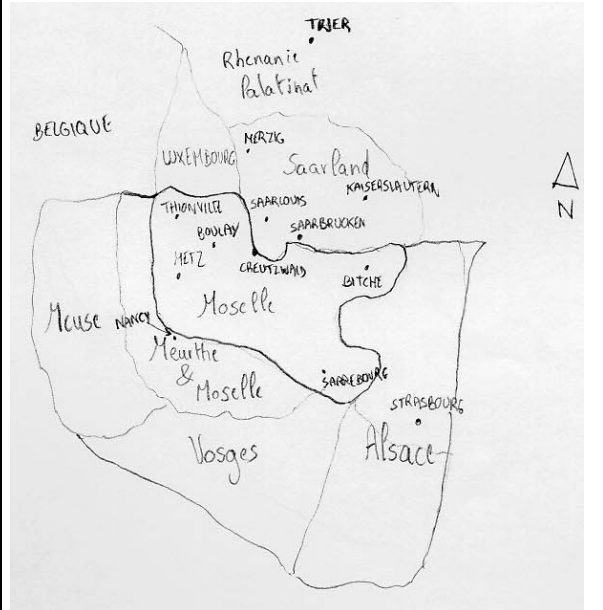 TRIER
Rhenanie
Palatinat
BELGIQUE
MERZIG
LUXEMBOURG
Saarland
KAISERSLAUTERN
N
THIONVILLE
SAARLOUIS
BOULAY
SAARBRUCKEN
METZ
CREUTZWALD
BITCHE
Moselle
Meuse
NANCY
Meurthe
&
Moselle
SARREBOURG
STRASBOURG
Vosges
Alsace